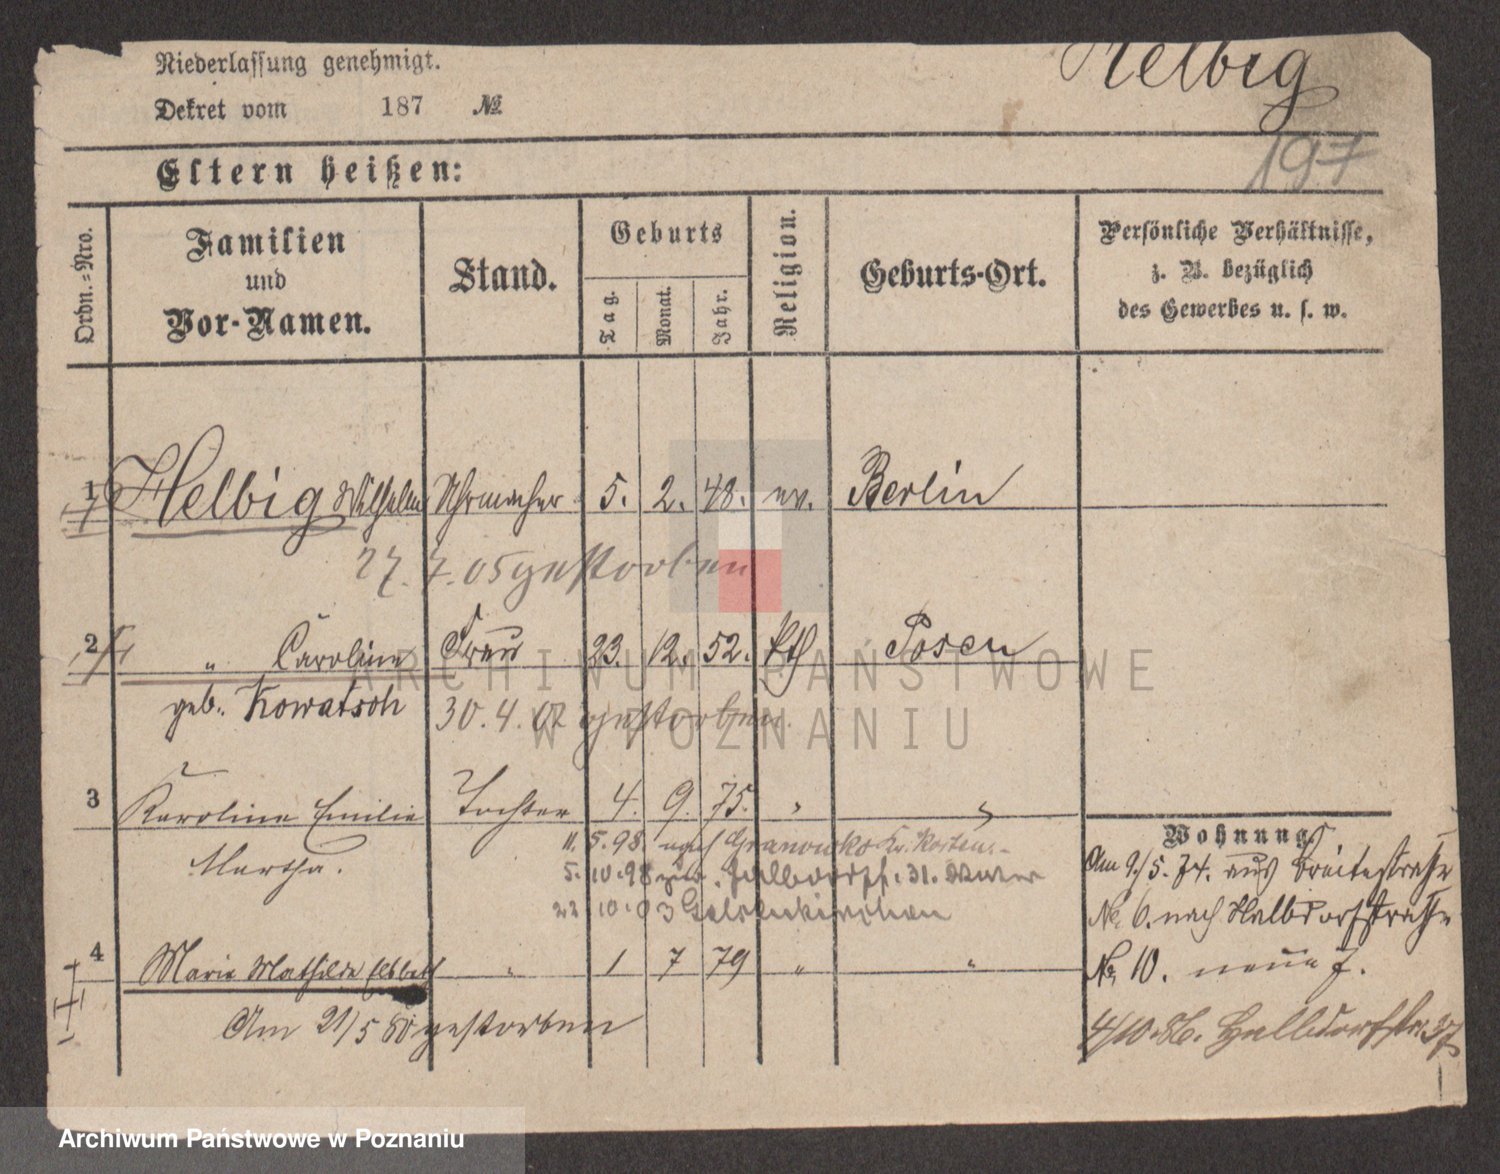 Helbig
Niederlassung genehmigt.
Dekret vom 187 №
197
Eltern heißen:
Ordn.=Nro.
Familien
und
Vor-Namen.
Stand.
Geburts
Tag.
Monat.
Jahr.
Religion.
Geburts-Ort.
Persönliche Verhältnisse,
z. B. bezüglich
des Gewerbes u. s. w.
1 Helbig Wilhelm Uhrmacher 5. 2. 48. ev. Berlin
27. 7. 05 gestorben
2 " Caroline Frau 23. 12. 52. kth Posen
geb. Kowatsch 30. 4. 02 gestorben.
3 Karoline Emilie Tochter 4. 9. 75. " "
Martha.
11. 5. 98. nach Granowko Kr. Kosten.
5. 10. 98 zur. Halbdorfstr. 31.
22 10. 03 Gelsenkirchen
4 Marie Mathilde Elsbeth " 1 7 79 " "
Am 21/5 80 gestorben
Wohnung
Am 9./5. 74. aus Breitestraße
No. 6. nach Halbdorfstraße
No. 10. neue 7.
4/10. 86. Halbdorfstr. 37
ARCHIWUM PAŃSTWOWE
W POZNANIU
Archiwum Państwowe w Poznaniu